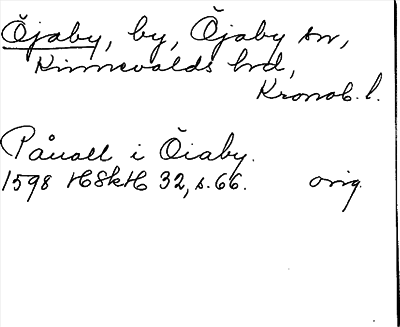 Öjaby, by, Öjaby sn,
Kinnevalds hd,
Kronob. l.
Påuall i Öiaby.
1598 HSkH 32, s. 66. orig.